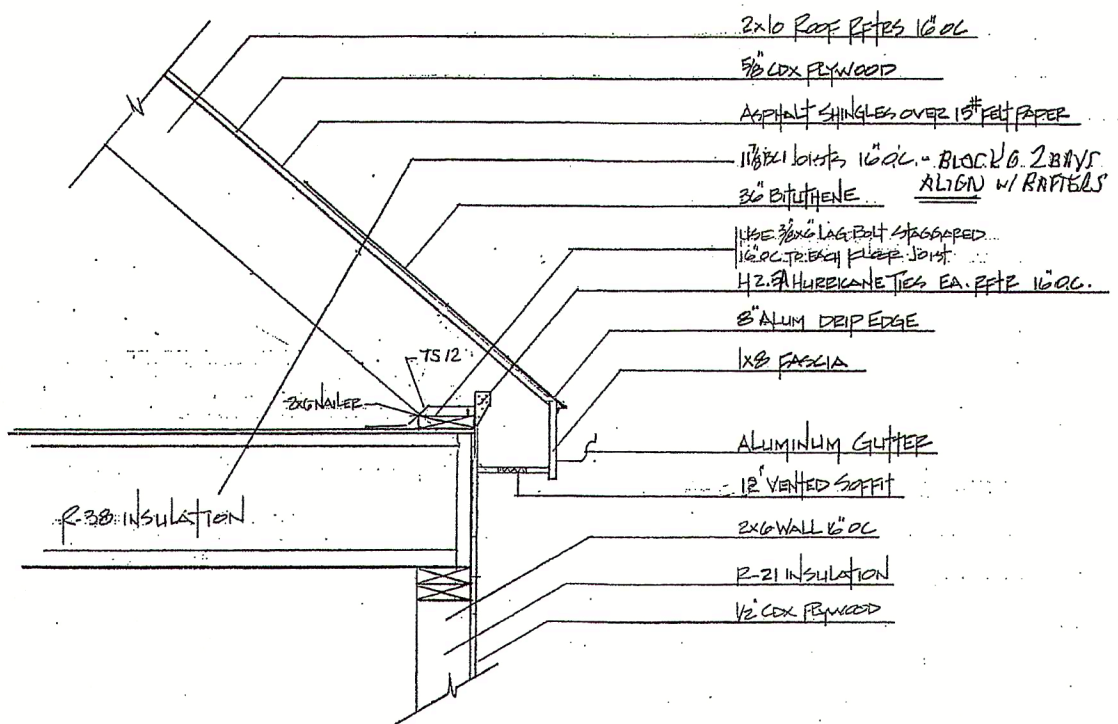 2x10 ROOF RFTRS 16" OC
5/8" CDX PLYWOOD
ASPHALT SHINGLES OVER 15# FELT PAPER
11 7/8" BCI JOISTS 16" O.C. - BLOCK'G 2 BAYS
ALIGN W/ RAFTERS
36" BITUTHENE
USE 3/8x6" LAG BOLT STAGGARED
16" OC TO EACH FLOOR JOIST
H2.5A HURRICANE TIES EA. RFTR 16" O.C.
8" ALUM DRIP EDGE
TS 12
1x8 FASCIA
2x6 NAILER
ALUMINUM GUTTER
12" VENTED SOFFIT
R-38 INSULATION
2x6 WALL 16" OC
R-21 INSULATION
1/2" CDX PLYWOOD